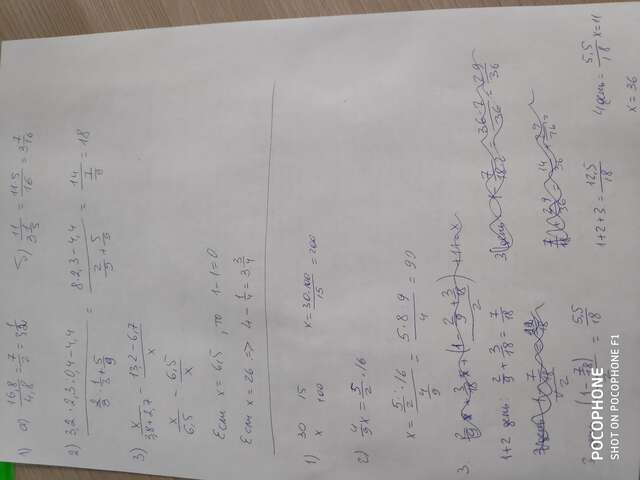 1) а) 16,8/4,8 = 7/2 = 3 1/2 б) 11/3 1/5 = 11·5/16 = 3 7/16
2) 3,2·2,3·0,4-4,4 / = 8·2,3-4,4 / 2/9 + 5/9 = 14 / 7/9 = 18
3) x/3,8+2,7 - 13,2-6,7/x
x/6,5 - 6,5/x
Если x = 6,5, то 1-1=0
Если x = 26 => 4 - 1/4 = 3 3/4
1) 30 15
x 100 x = 30·100/15 = 200
2) 4/9 x = 5/2 · 16
x = 5/2 · 16 / 4/9 = 5·8·9/4 = 90
3.
1+2 день: 2/9 + 3/18 = 7/18
(1 - 7/18) / 2 = 5,5/18
1+2+3 = 12,5/18
4 день = 5,5/18 x = 11
x = 36
POCOPHONE
SHOT ON POCOPHONE F1